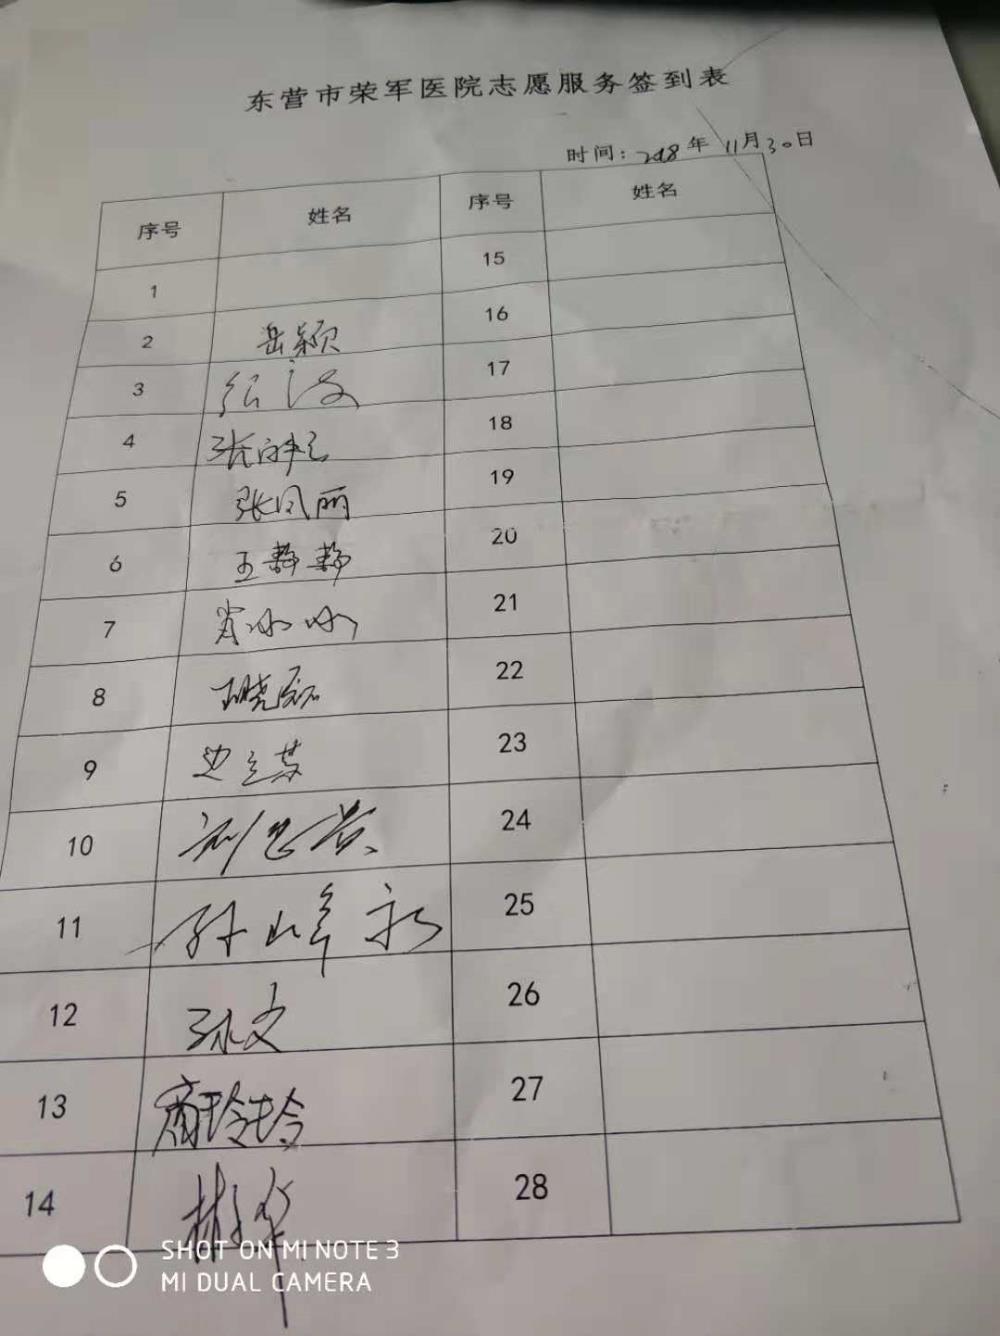 东营市荣军医院志愿服务签到表
时间：2018年11月30日
序号 姓名 序号 姓名
1 15
2 岳颖 16
3 17
4 18
5 张凤丽 19
6 王静静 20
7 肖冰冰 21
8 22
9 边立英 23
10 24
11 孙峰 25
12 孙文 26
13 商玲玲 27
14 28
SHOT ON MI NOTE 3
MI DUAL CAMERA